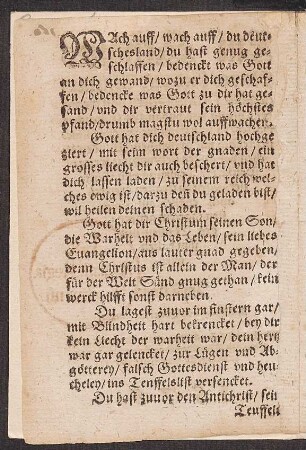 WAch auff/ wach auff/ du deut-
schesland/ du hast genug ge-
schlaffen/ bedenckt was Gott
an dich gewand/ wozu er dich geschaf-
fen/ bedencke was Gott zu dir hat ge-
sand/ vnd dir vertraut sein höchstes
pfand/ drumb magstu wol auffwachen.
Gott hat dich deutschland hochge
ziert/ mit seim wort der gnaden/ ein
grosses liecht dir auch beschert/ vnd hat
dich lassen laden/ zu seinem reich wel-
ches ewig ist/ darzu deñ du geladen bist/
wil heilen deinen schaden.
Gott hat dir Christum seinen Son/
die Warheit vnd das Leben/ sein liebes
Euangelion/ aus lauter gnad gegeben/
denn Christus ist allein der Man/ der
für der Welt Sünd gnug gethan/ kein
werck hilfft sonst darneben.
Du lagest zuuor im finstern gar/
mit Blindheit hart bekrencket/ bey dir
kein liecht der warheit war/ dein hertz
war gar gelencket/ zur Lügen vnd Ab-
götterey/ falsch Gottesdienst vnd heu-
cheley/ ins Teuffelslist versencket.
Du hast zuuor den Antichrist/ sein
Teuffeli